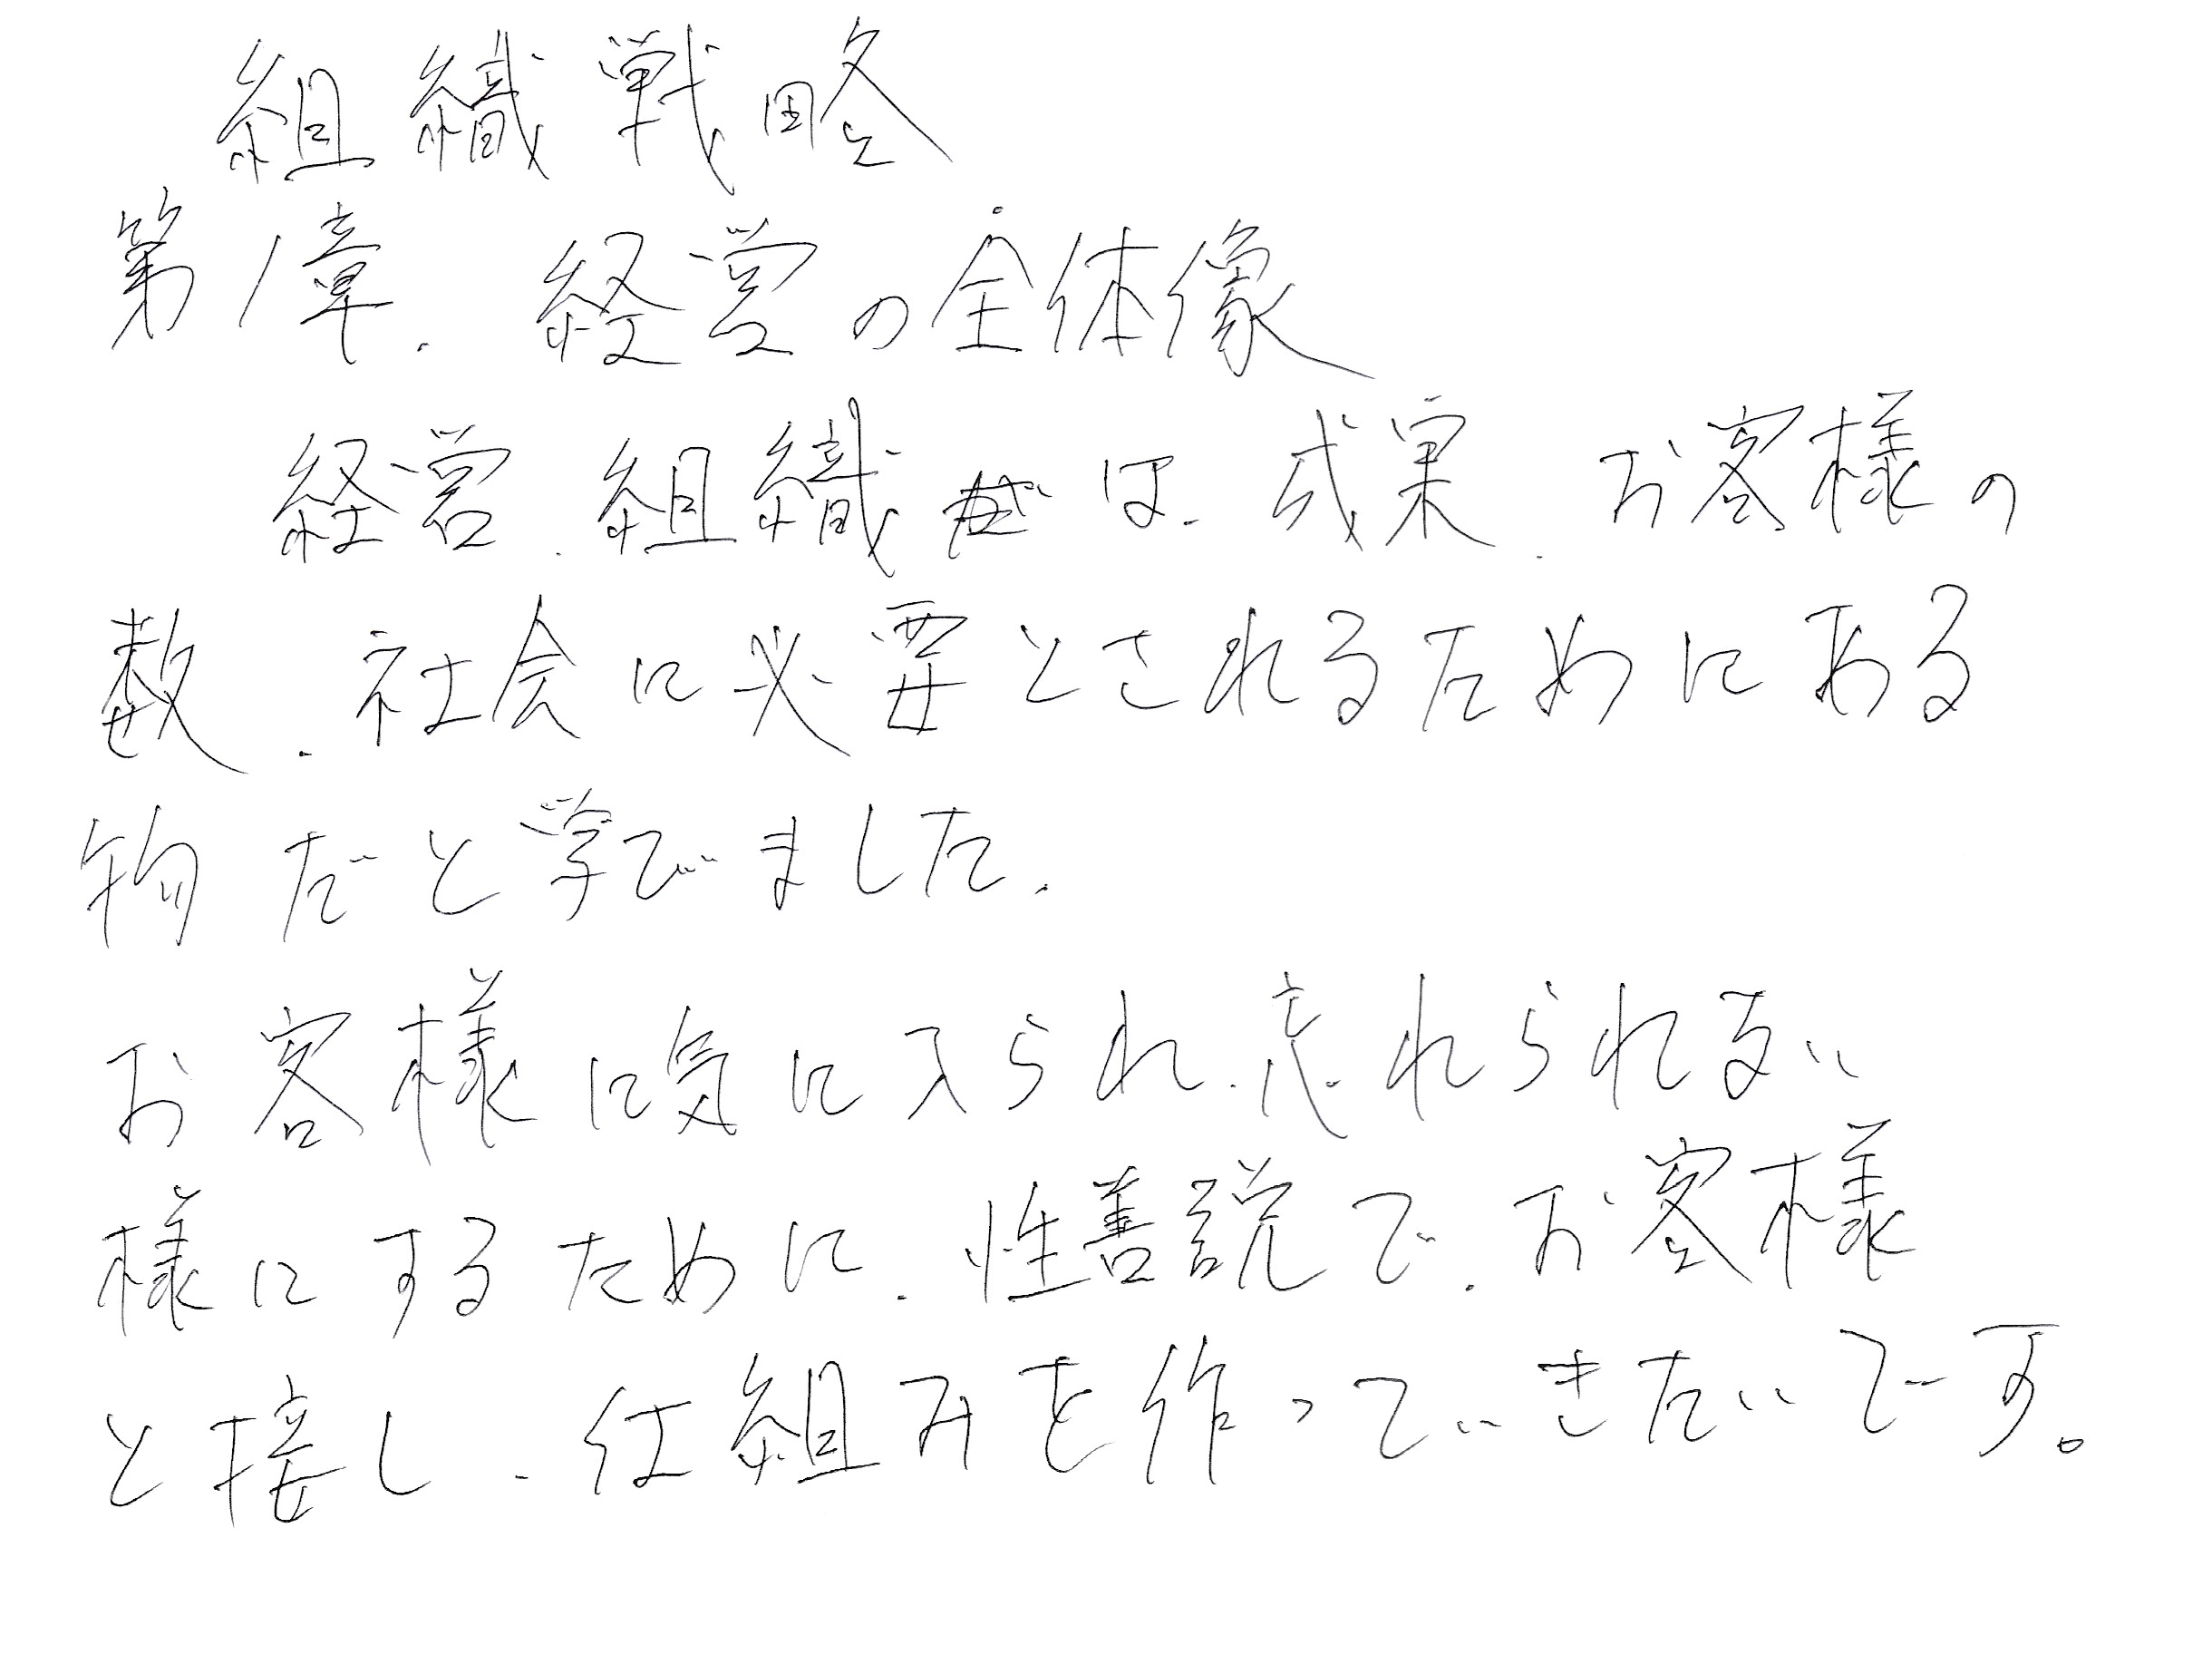 組織戦略
第1章. 経営の全体像
経営、組織は、成果、お客様の
数、社会に必要とされるためにある
物だと学びました。
お客様に気に入られ、忘れられない
様にするために、性善説で、お客様
と接し、仕組みを作っていきたいです。